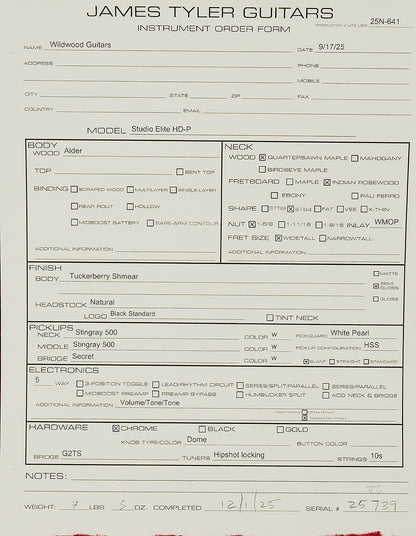 JAMES TYLER GUITARS
INSTRUMENT ORDER FORM
PRODUCTION # 25N-641
NAME Wildwood Guitars DATE 9/17/25
ADDRESS PHONE
MOBILE
CITY STATE ZIP FAX
COUNTRY EMAIL
MODEL Studio Elite HD-P
BODY
WOOD Alder
TOP BENT TOP
BINDING SCRAPED WOOD MULTILAYER SINGLE-LAYER
REAR ROUT HOLLOW
MIDBOOST BATTERY BARE-ARM CONTOUR
ADDITIONAL INFORMATION
NECK
WOOD QUARTERSAWN MAPLE MAHOGANY
BIRDSEYE MAPLE
FRETBOARD MAPLE INDIAN ROSEWOOD
EBONY PAU FERRO
SHAPE ST59 ST64 FAT VEE X-THIN
NUT 1-5/8 1-11/16 1-9/16 INLAY WMOP
FRET SIZE WIDE/TALL NARROW/TALL
ADDITIONAL INFORMATION
FINISH
BODY Tuckerberry Shmear
MATTE
SEMI GLOSS
GLOSS
HEADSTOCK Natural
LOGO Black Standard TINT NECK
PICKUPS
NECK Stingray 500 COLOR W PICKGUARD White Pearl
MIDDLE Stingray 500 COLOR W PICKUP CONFIGURATION HSS
BRIDGE Secret COLOR W SLANT STRAIGHT STANDARD
ELECTRONICS
5 WAY 3-POSITION TOGGLE LEAD/RHYTHM CIRCUIT SERIES/SPLIT/PARALLEL SERIES/PARALLEL
MIDBOOST PREAMP PREAMP BYPASS HUMBUCKER SPLIT ADD NECK & BRIDGE
ADDITIONAL INFORMATION Volume/Tone/Tone
HARDWARE CHROME BLACK GOLD
KNOB TYPE/COLOR Dome BUTTON COLOR
BRIDGE G2TS TUNERS Hipshot locking STRINGS 10s
NOTES:
WEIGHT: 7 LBS. 5 OZ. COMPLETED 12/1/25 SERIAL # 25739